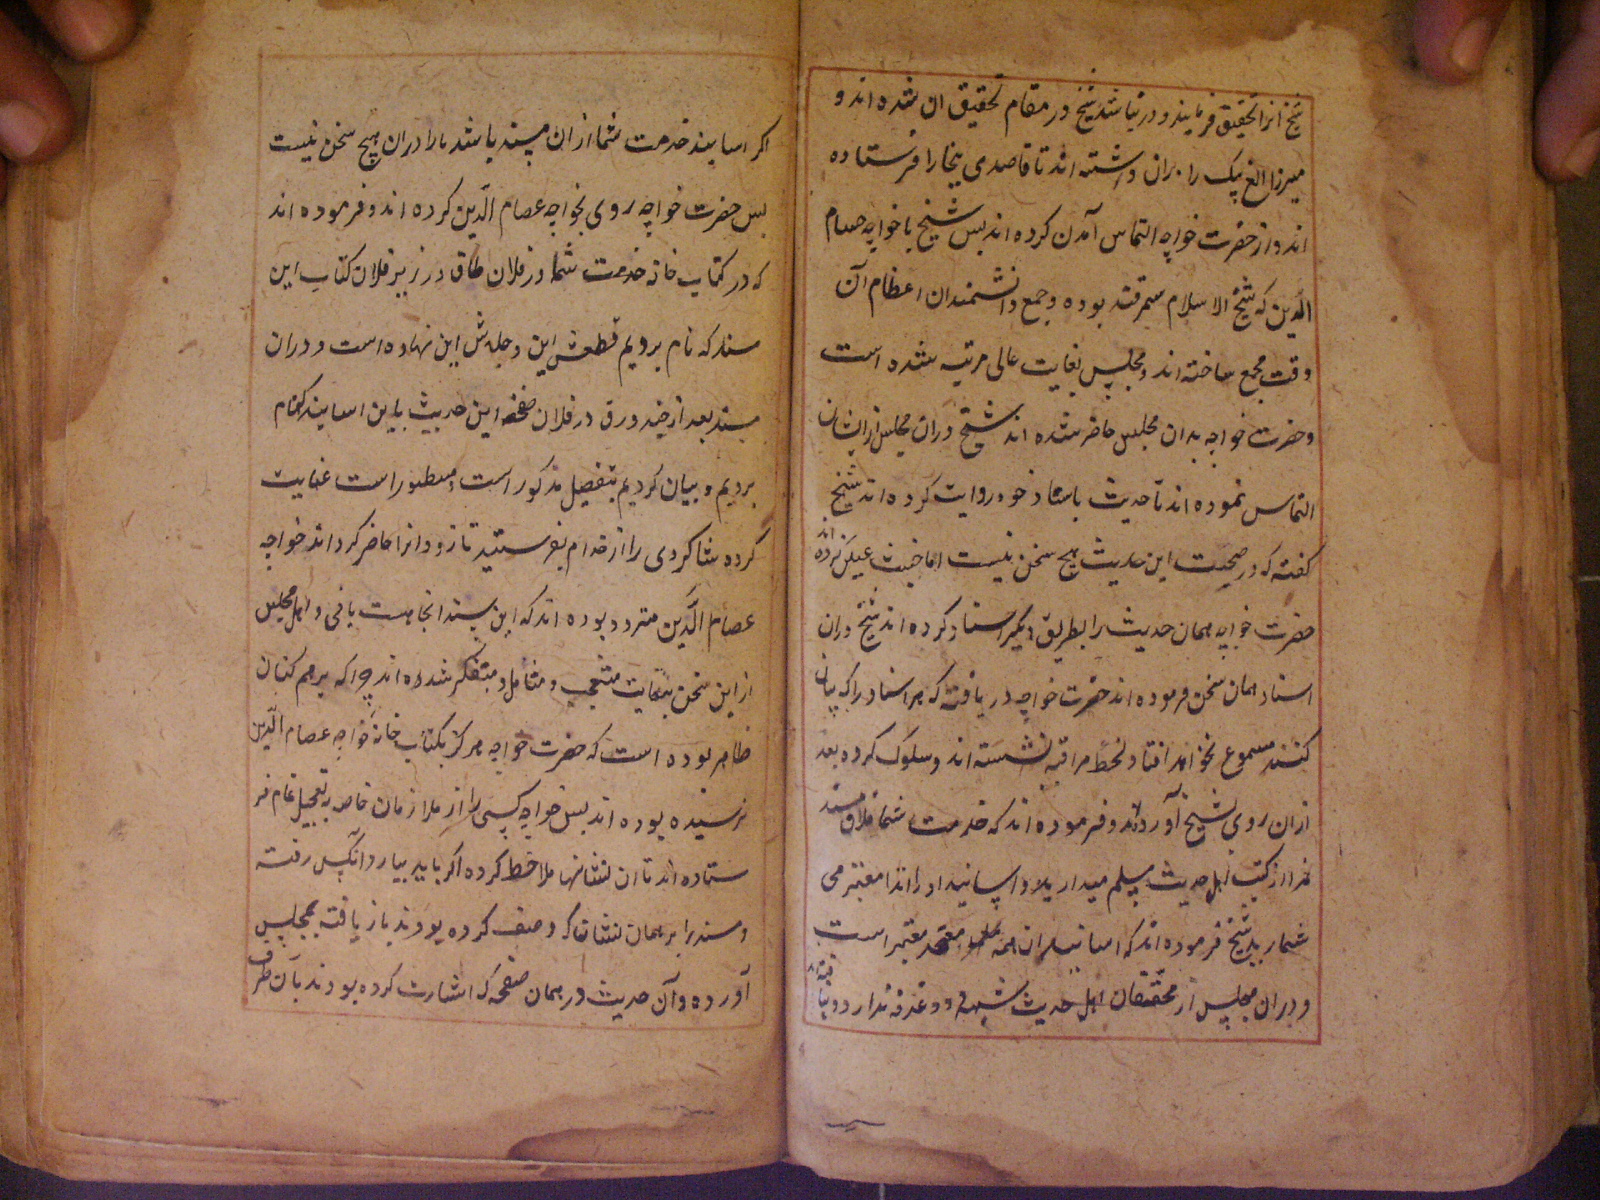 شیخ انرا تحقیق فرمایند و در نیاشد شیخ در مقام تحقیق ان شده اند و
میرزا الغ بیک را بران داشته اند تا قاصدی بخارا فرستاده
اند و از حضرت خواجه التماس آمدن کرده اند بس شیخ با خواجه عصام
الدین که شیخ الاسلام سمرقند بوده و جمع دانشمندان اعظام آن
وقت مجمع ساخته اند و مجلس بغایت عالی مرتبه شده است
و حضرت خواجه بدان مجلس حاضر شده اند شیخ دران مجلس از ایشان
التماس نموده اند تا حدیث باسناد خود روایت کرده اند شیخ
گفته که در صحت این حدیث هیچ سخن نیست اما
حضرت خواجه همان حدیث را بطریق دیگر اسناد کرده اند شیخ دران
اسناد همان سخن فرموده اند حضرت خواجه دریافته که هر اسناد را که بیان
کنند مسموع نخواهد افتاد لحظه مراقبه نشسته اند و سلوک کرده بعد
ازان روی بشیخ آورده اند و فرموده اند که خدمت شما فلان مسند
را از کتب اهل حدیث مسلم میدارید و اسانید او را معتبر می
شمارید شیخ فرموده اند که اسانید ان همه معتمد معتبر است
و دران مجلس از محققان اهل حدیث شبهه و دغدغه ندارد
اکر اسانید خدمت شما ازان مسند باشد مارا دران هیچ سخن نیست
بس حضرت خواجه روی بخواجه عصام الدین کرده اند و فرموده اند
که در کتاب خانه خدمت شما در فلان طاق در زیر فلان کتاب این
مسند که نام بردیم قطعش این و جلدش این نهاده است و دران
مسند بعد از چند ورق در فلان صفحه این حدیث باین اسانید که نام
بردیم و بیان کردیم بتفصیل مذکور است و مسطور است عنایت
کرده شاکردی را از خدام بفرستید تا زود انرا حاضر کرداند خواجه
عصام الدین متردد بوده اند که این مسند انجا هست یا نی و اهل مجلس
از این سخن بغایت متعجب و متامل و متفکر شده اند چرا که بر همکنان
ظاهر بوده است که حضرت خواجه هرکز بکتاب خانه خواجه عصام الدین
نرسیده بوده اند بس خواجه کسی را از ملازمان خاصه بتعجیل تمام فر
ستاده اند تا ان نشانها ملاحظه کرده اکر یابد بیارد آنکس رفته
و مسند را بر همان نشان که وصف کرده بودند باز یافته بمجلس
آورده و آن حدیث در همان صفحه که اشارت کرده بودند بآن طرف